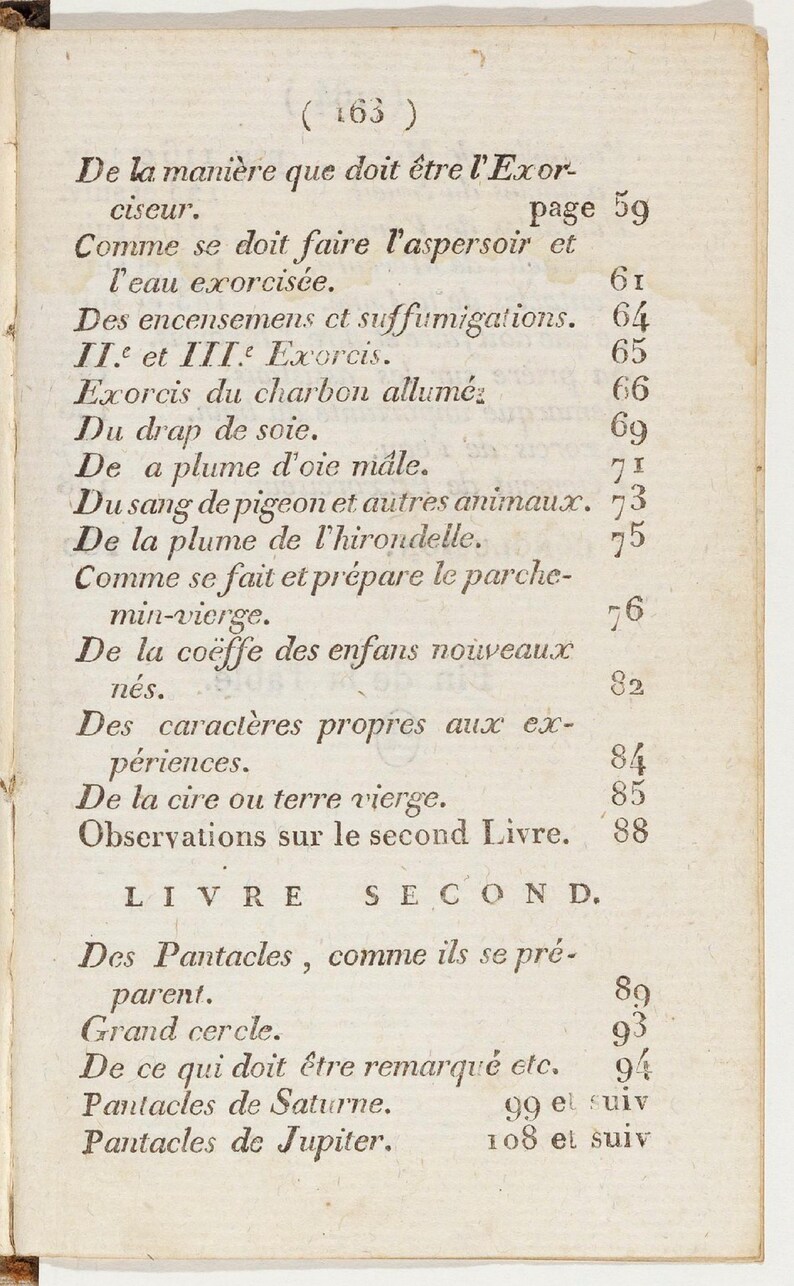 ( 163 )
De la manière que doit être l'Exor-
ciseur. page 59
Comme se doit faire l'aspersoir et
l'eau exorcisée. 61
Des encensemens et suffumigations. 64
II.e et III.e Exorcis. 65
Exorcis du charbon allumé. 66
Du drap de soie. 69
De a plume d'oie mâle. 71
Du sang de pigeon et autres animaux. 73
De la plume de l'hirondelle. 75
Comme se fait et prépare le parche-
min-vierge. 76
De la coëffe des enfans nouveaux
nés. 82
Des caractères propres aux ex-
périences. 84
De la cire ou terre vierge. 85
Observations sur le second Livre. 88
LIVRE SECOND.
Des Pantacles, comme ils se pré-
parent. 89
Grand cercle. 93
De ce qui doit être remarqué etc. 94
Pantacles de Saturne. 99 et suiv
Pantacles de Jupiter. 108 et suiv